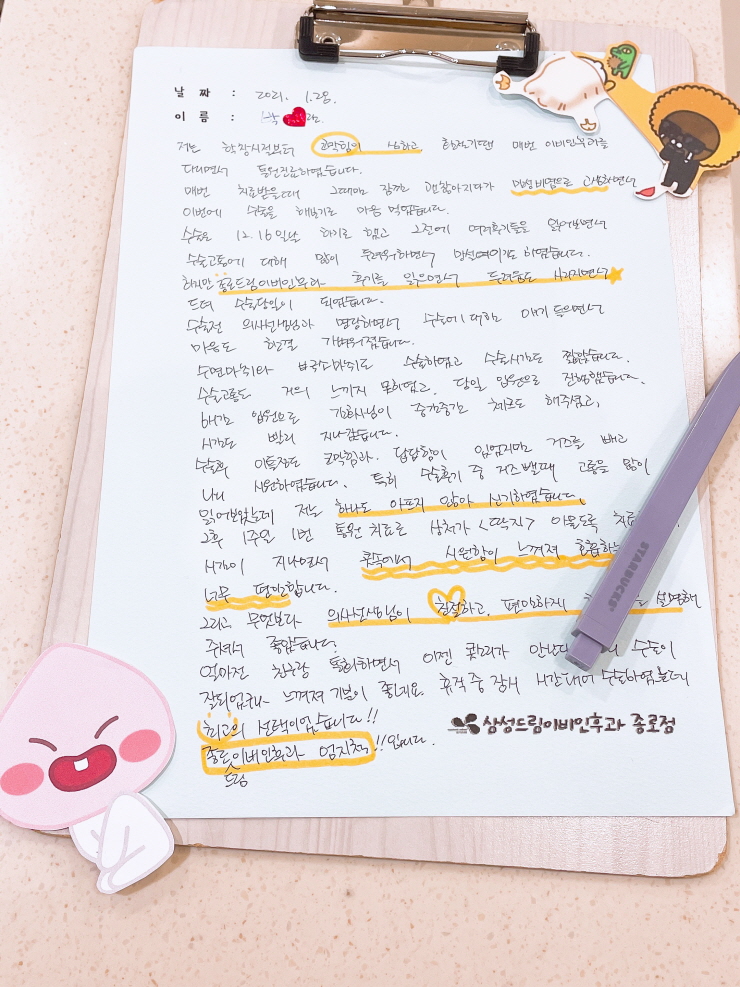 날 짜 : 2021. 1. 28.
이 름 : 박
저는 학창시절부터 코막힘이 심하고, 환절기땐 매번 이비인후과를
다니면서 통원진료하였습니다.
매번 치료받을때 그때만 잠깐 괜찮아지다가 만성비염으로 고생하면서
이번에 수술을 해보기로 마음 먹었습니다.
수술은 12.16일날 하기로 했고 그전에 여러후기들을 읽어보면서
수술고통에 대해 많이 두려워하면서 망설여이기도 하였습니다.
하지만 종로드림이비인후과 후기를 읽으면서 두려움도 사라지면서
드뎌 수술당일이 되었습니다.
수술전 의사선생님과 면담하면서 수술에 대한 얘기 들으면서
마음도 한결 가벼워졌습니다.
수면마취라 부국소마취도 수술하였고 수술시간도 짧았습니다.
수술고통도 거의 느끼지 못하였고, 당일 입원으로 진행했습니다.
6시간 입원으로 간호사님이 중간중간 체크도 해주셨고,
시간도 빨리 지나갔습니다.
수술후 이틀정도 코막힘과 답답함이 있었지만 거즈를 빼고
나니 시원하였습니다. 특히 수술후기 중 거즈뺄때 고통을 많이
읽어보았는데 저는 하나도 아프지 않아 신기하였습니다.
그후 1주일 1번 통원치료로 상처가 <딱지> 아물도록
시간이 지나면서 콧속에서 시원함이 느껴져
너무 편안합니다.
그리고 무엇보다 의사선생님이 친절하고, 편안하게 설명해
주셔서 좋았습니다.
얼마전 친구랑 통화하면서 이젠 콧소리가 수술이
잘되었구나 느껴져 기분이 좋네요. 휴직 중 잠시 시간내어 수술하였는데
최고의 선택이었습니다!!
종로이비인후과 엄지척!! 입니다.
드림
삼성드림이비인후과 종로점
STARBUCKS